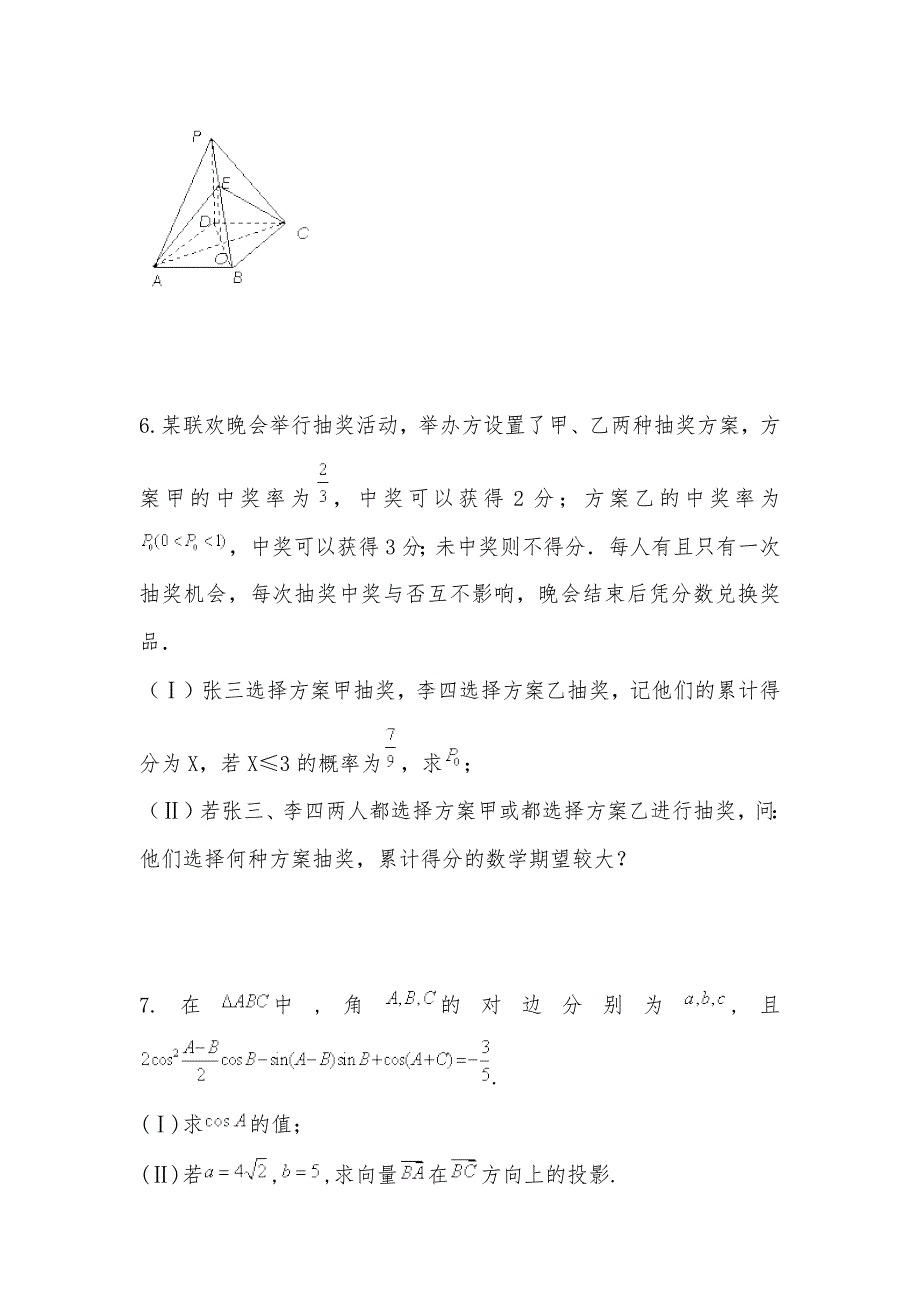 P
E
D
C
O
A
B
6.某联欢晚会举行抽奖活动，举办方设置了甲、乙两种抽奖方案，方
案甲的中奖率为 2/3，中奖可以获得2分；方案乙的中奖率为
P₀(0<P₀<1)，中奖可以获得3分；未中奖则不得分．每人有且只有一次
抽奖机会，每次抽奖中奖与否互不影响，晚会结束后凭分数兑换奖
品．
（Ⅰ）张三选择方案甲抽奖，李四选择方案乙抽奖，记他们的累计得
分为X，若X≤3的概率为 7/9，求P₀；
（Ⅱ）若张三、李四两人都选择方案甲或都选择方案乙进行抽奖，问：
他们选择何种方案抽奖，累计得分的数学期望较大？
7. 在 ΔABC 中，角 A,B,C 的对边分别为 a,b,c，且
2cos² (A−B)/2 cosB−sin(A−B)sinB+cos(A+C)=−3/5.
(Ⅰ)求cosA的值；
(Ⅱ)若a=4√2,b=5,求向量B͞A͞在B͞C͞方向上的投影.